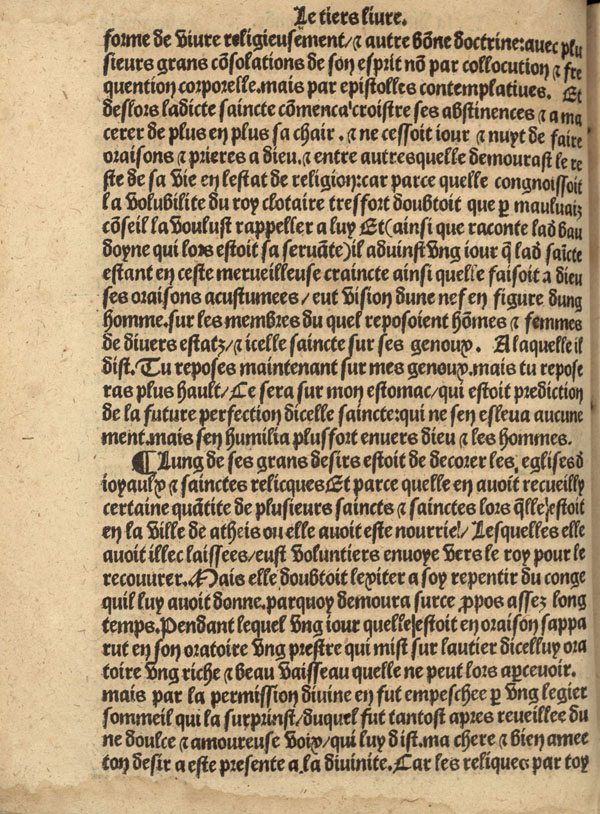 Le tiers liure.
forme de viure religieusement/⁊ autre bõne doctrine:auec plu
sieurs grans cõsolations de son esprit nõ par collocution ⁊ fre
quention corporelle.mais par epistolles contemplatiues. Et
deslors ladicte saincte cõmenca croistre ses abstinences ⁊ a ma
cerer de plus en plus sa chair . ⁊ ne cessoit iour ⁊ nuyt de faire
oraisons ⁊ prieres a dieu.⁊ entre autresquelle demourast le re
ste de sa vie en lestat de religion:car parce quelle congnoissoit
la volubilite du roy clotaire tresfort doubtoit que ꝑ mauluaiz
cõseil la voulust rappeller a luy Et(ainsi que raconte lad bau
doyne qui lors estoit sa seruãte)il aduinst vng iour q̃ lad saĩcte
estant en ceste merueilleuse craincte ainsi quelle faisoit a dieu
ses oraisons acustumees/eut vision dune nef en figure dung
homme.sur les membres du quel reposoient hõmes ⁊ femmes
de diuers estatz/⁊ icelle saincte sur ses genoux. A laquelle il
dist.Tu reposes maintenant sur mes genoux.mais tu repose
ras plus hault/Ce sera sur mon estomac/qui estoit prediction
de la future perfection dicelle saincte:qui ne sen esleua aucune
ment.mais sen humilia plusfort enuers dieu ⁊ les hommes.
¶Lung de ses grans desirs estoit de decorer les eglises d
ioyaulx ⁊ sainctes relicquesEt parce quelle en auoit recueilly
certaine quãtite de plusieurs saincts ⁊ sainctes lors q̃lle estoit
en la ville de atheis ou elle auoit este nourrie/Lesquelles elle
auoit illec laissees/eust voluntiers enuoye vers le roy pour le
recouurer.Mais elle doubtoit lexiter a soy repentir du conge
quil luy auoit donne.parquoy demoura surce ꝓpos assez long
temps.Pendant lequel vng iour quelle estoit en oraison sappa
rut en son oratoire vng prestre qui mist sur lautier dicelluy ora
toire vng riche ⁊ beau vaisseau quelle ne peut lors aꝑceuoir.
mais par la permission diuine en fut empeschee ꝑ vng legier
sommeil qui la surprinst/duquel fut tantost apres reueillee du
ne doulce ⁊ amoureuse voix/qui luy dist.ma chere ⁊ bien amee
ton desir a este presente a la diuinite.Car les reliques par toy